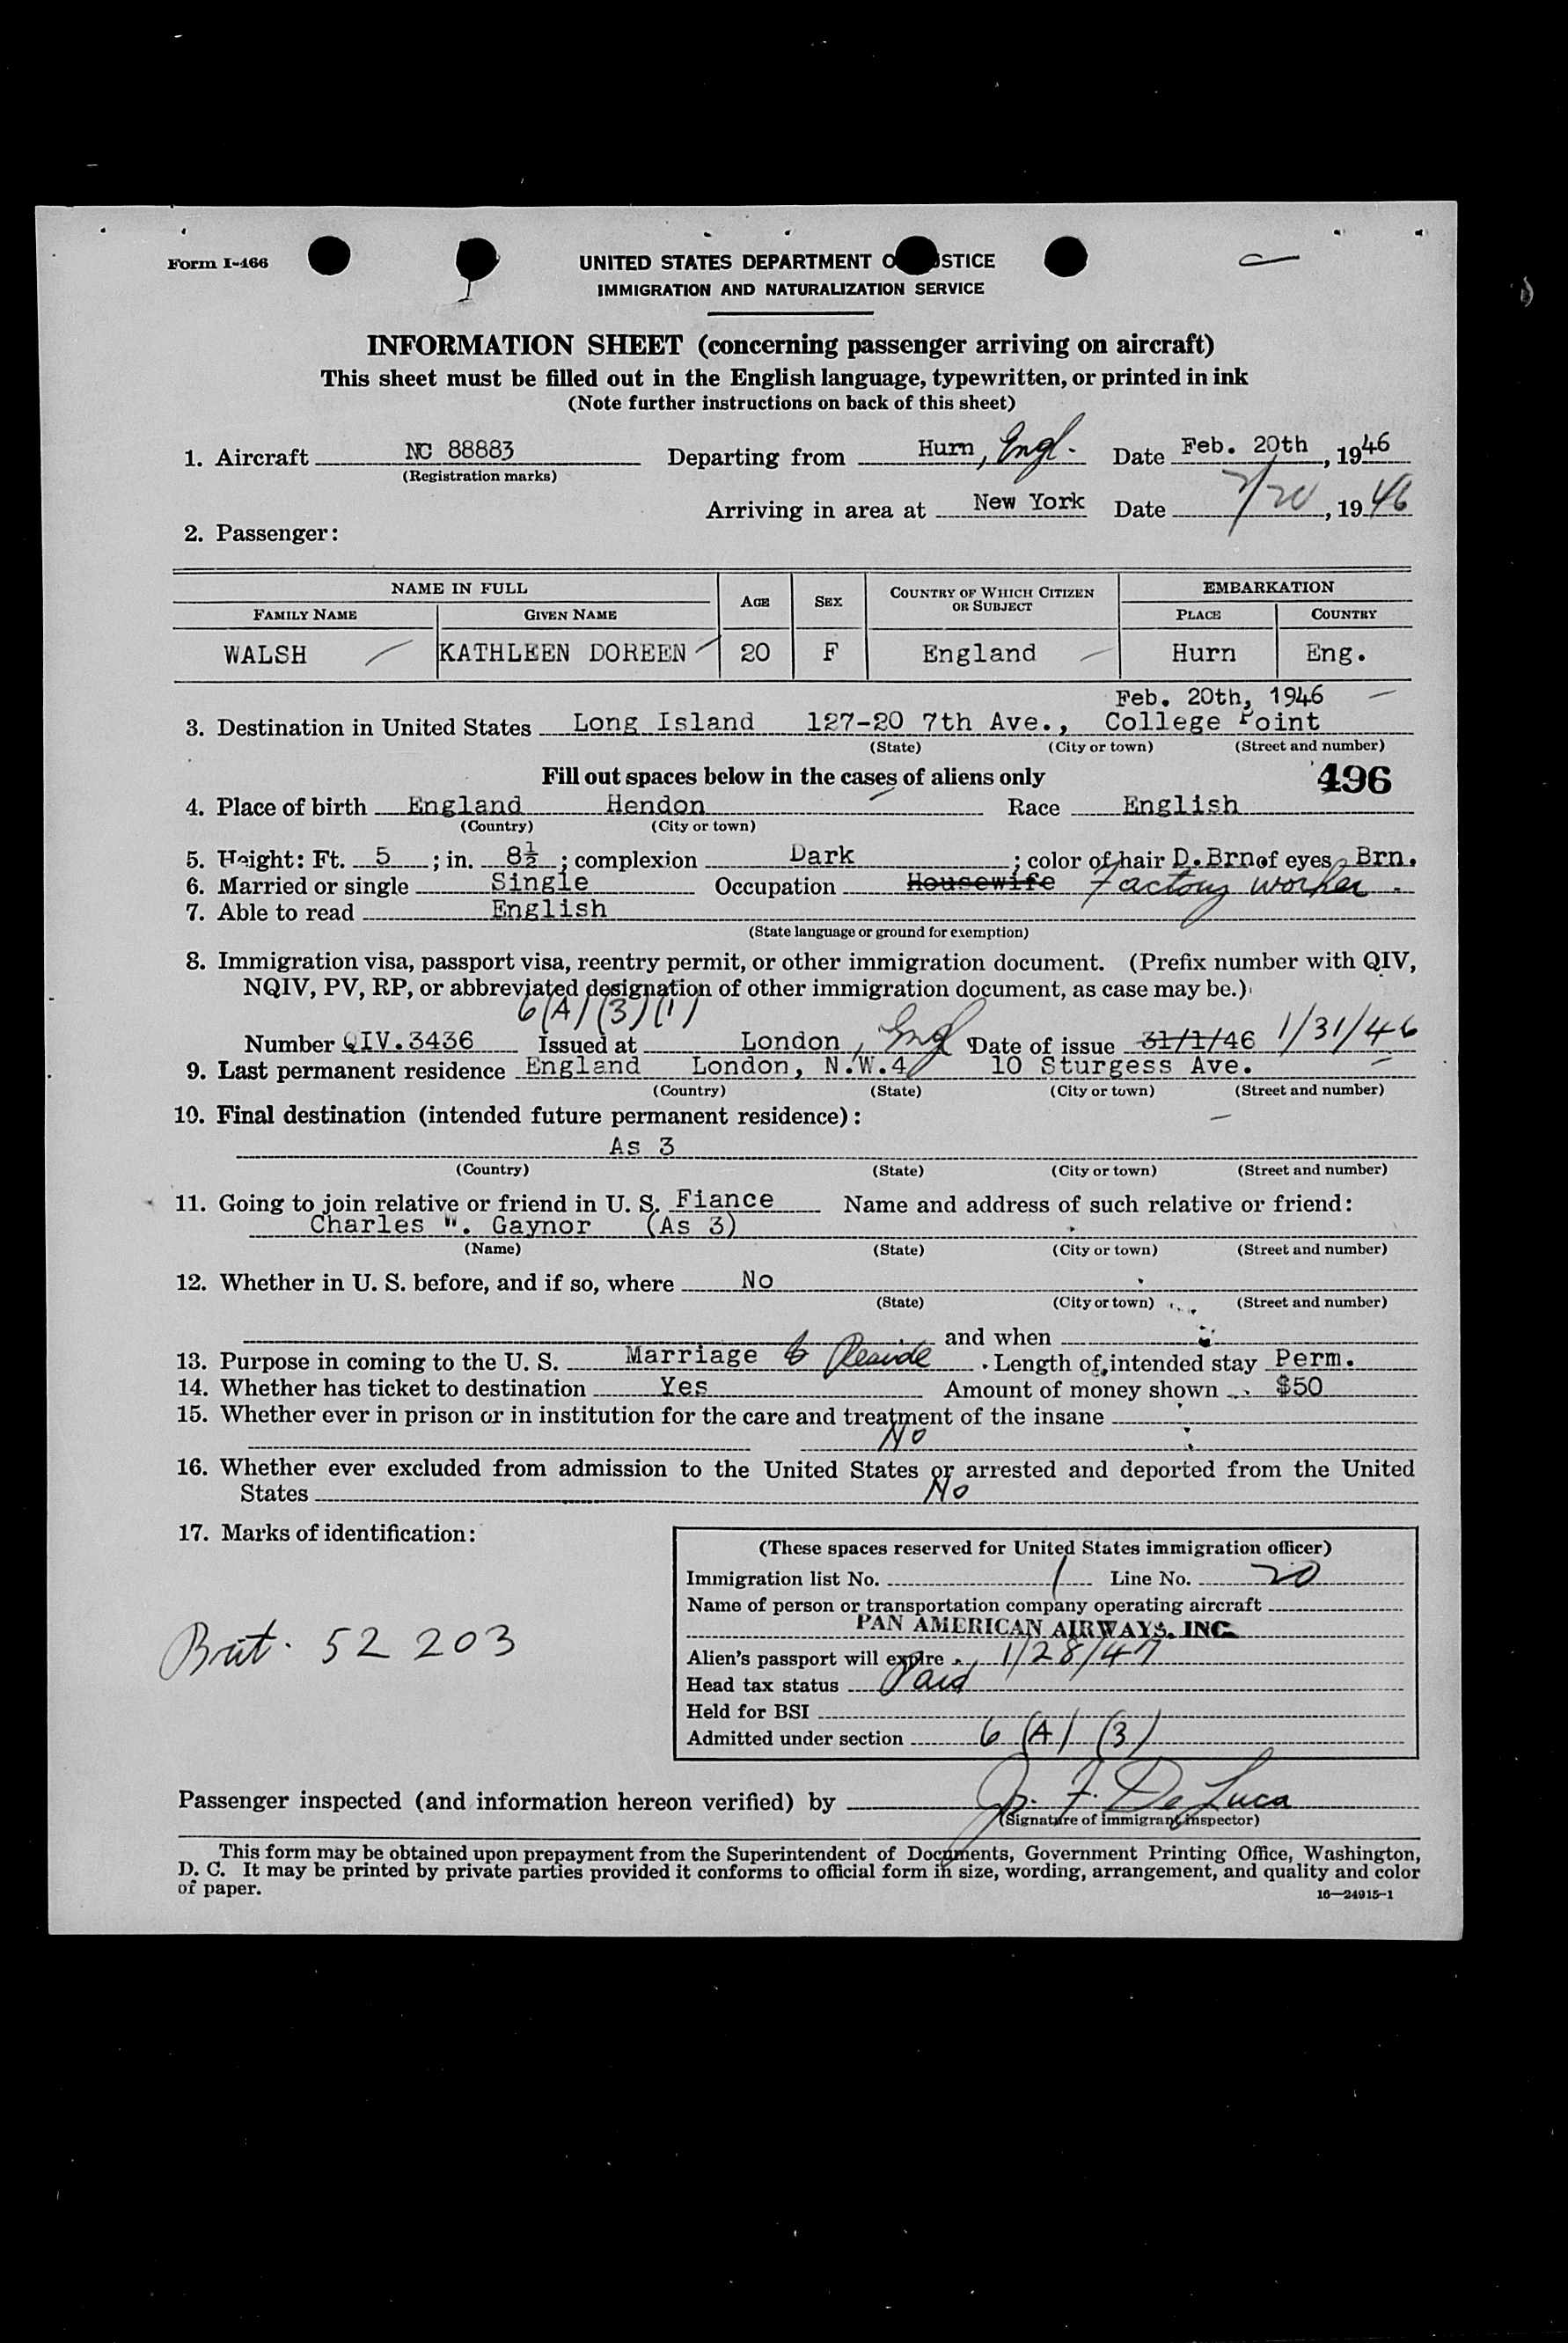 Form I-466
UNITED STATES DEPARTMENT O STICE
IMMIGRATION AND NATURALIZATION SERVICE
INFORMATION SHEET (concerning passenger arriving on aircraft)
This sheet must be filled out in the English language, typewritten, or printed in ink
(Note further instructions on back of this sheet)
1. Aircraft NC 88883 Departing from Hurn, Engl. Date Feb. 20th, 1946
(Registration marks)
Arriving in area at New York Date 2/20, 1946
2. Passenger:
NAME IN FULL AGE SEX COUNTRY OF WHICH CITIZEN OR SUBJECT EMBARKATION
FAMILY NAME GIVEN NAME PLACE COUNTRY
WALSH KATHLEEN DOREEN 20 F England Hurn Eng.
Feb. 20th, 1946
3. Destination in United States Long Island 127-20 7th Ave., College Point
(State) (City or town) (Street and number)
Fill out spaces below in the cases of aliens only 496
4. Place of birth England Hendon Race English
(Country) (City or town)
5. Height: Ft. 5; in. 8½; complexion Dark; color of hair D.Brn of eyes Brn.
6. Married or single Single Occupation Housewife Factory worker.
7. Able to read English
(State language or ground for exemption)
8. Immigration visa, passport visa, reentry permit, or other immigration document. (Prefix number with QIV,
NQIV, PV, RP, or abbreviated designation of other immigration document, as case may be.)
6(A)(3)(1)
Number QIV.3436 Issued at London, Engl Date of issue 31/1/46 1/31/46
9. Last permanent residence England London, N.W.4 10 Sturgess Ave.
(Country) (State) (City or town) (Street and number)
10. Final destination (intended future permanent residence):
As 3
(Country) (State) (City or town) (Street and number)
11. Going to join relative or friend in U. S. Fiance Name and address of such relative or friend:
Charles W. Gaynor (As 3)
(Name) (State) (City or town) (Street and number)
12. Whether in U. S. before, and if so, where No
(State) (City or town) (Street and number)
and when
13. Purpose in coming to the U. S. Marriage & Reside. Length of intended stay Perm.
14. Whether has ticket to destination Yes Amount of money shown $50
15. Whether ever in prison or in institution for the care and treatment of the insane
No
16. Whether ever excluded from admission to the United States or arrested and deported from the United
States No
17. Marks of identification:
Brit. 52 203
(These spaces reserved for United States immigration officer)
Immigration list No. 1 Line No. 20
Name of person or transportation company operating aircraft
PAN AMERICAN AIRWAYS, INC.
Alien's passport will expire 1/28/47
Head tax status Paid
Held for BSI
Admitted under section 6 (A) (3)
Passenger inspected (and information hereon verified) by F. De Luca
(Signature of immigrant inspector)
This form may be obtained upon prepayment from the Superintendent of Documents, Government Printing Office, Washington,
D. C. It may be printed by private parties provided it conforms to official form in size, wording, arrangement, and quality and color
of paper.
16—24915-1